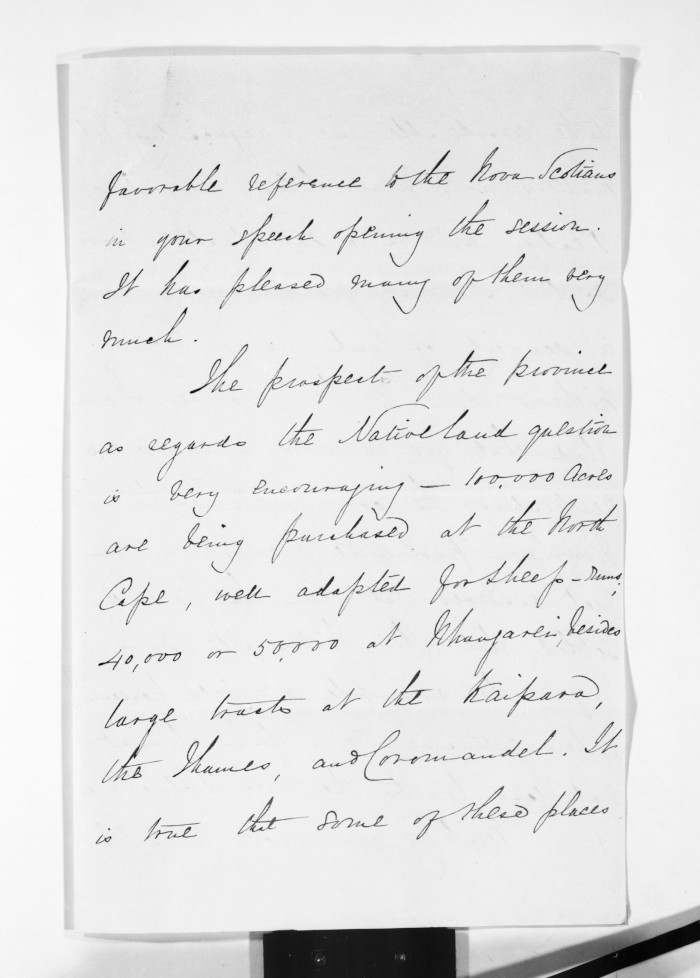 favorable reference to the Nova Scotians
in your speech opening the session.
It has pleased many of them very
much.
The prospect of the province
as regards the Native land question
is very encouraging — 100,000 Acres
are being purchased at the North
Cape, well adapted for sheep-runs,
40,000 or 50,000 at Whangarei, besides
large tracts at the Kaipara,
the Thames, and Coromandel. It
is true that some of these places